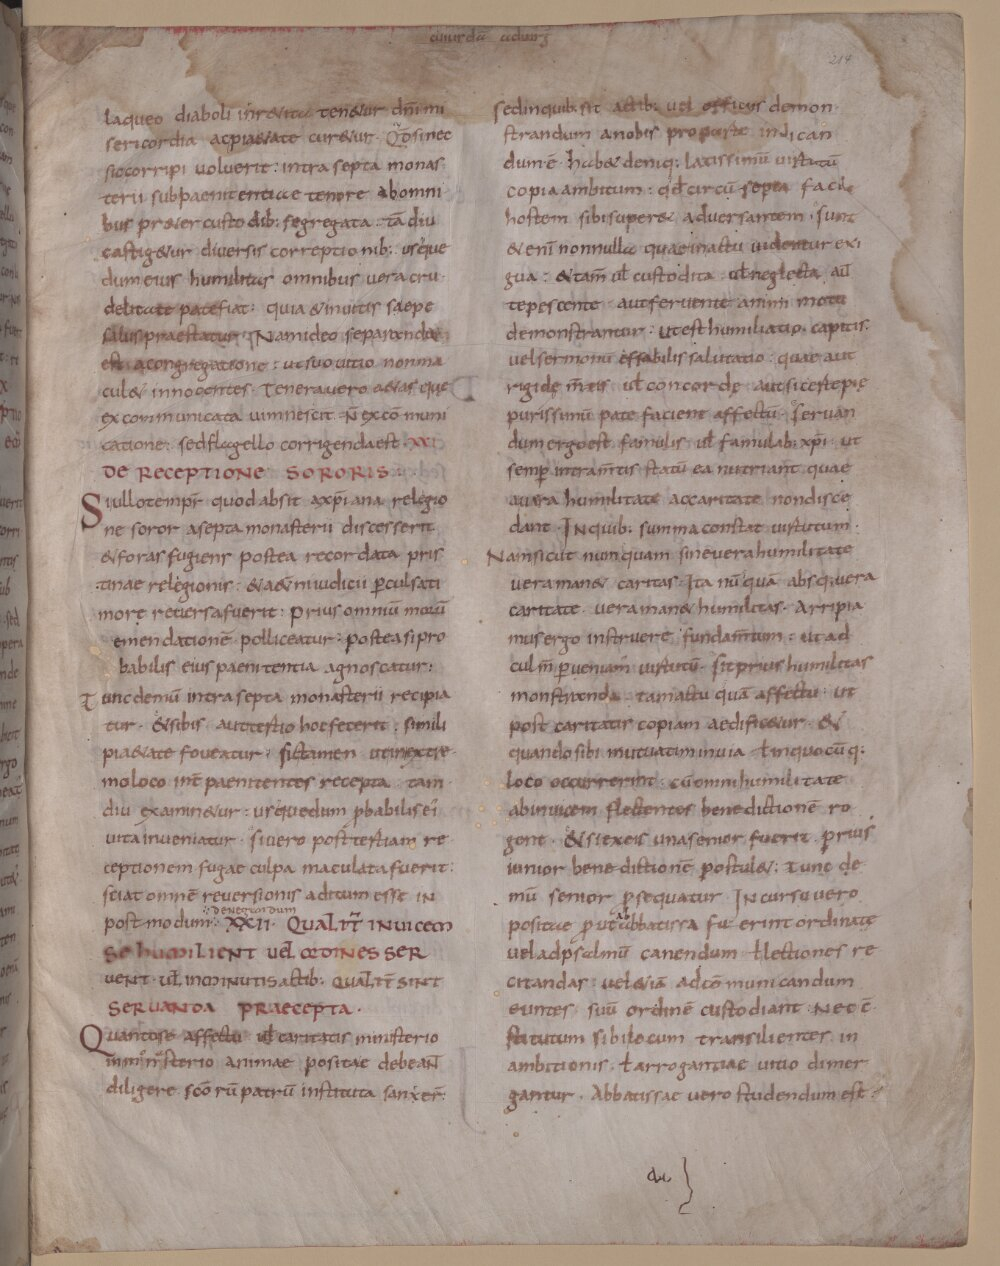 laqueo diaboli inretita tenetur dñi mi
sericordia ac pietate curetur · Qđ si nec
sic corripi voluerit : intra septa monas
terii sub paenitentiae tenore ab omni
bus preter custodib: segregata · tā diu
castigetur diversis correptionib: usque
dum eius humilitas omnibus vera cru
delitate patefiat : quia et invitis saepe
salus praestatur Nam ideo separanda
est a congregatione : ut suo vitio non ma
culet innocentes · Tenera vero aetas que
excommunicata nescit · Ñ excōmuni
catione : sed flagello corrigenda est · XXI
DE RECEPTIONE SORORIS :
Si ullo tempr quod absit a xpiana relegio
ne soror a septa monasterii discesserit
& foras fugiens postea recordata pris
tinae relegionis : & aetñi iudicii pculsa ti
more reversa fuerit : prius omniū modū
emendationē polliceatur : postea si pro
babilis eius paenitentia agnoscatur :
Tunc demū intra septa monasterii recipia
tur · & si bis aut tertio hoc fecerit · simili
pietate foveatur · sic tamen ut in extre
mo loco int paenitentes recepta · tam
diu examinetur : usquedum pbabilis ei
vita inveniatur · si vero post tertiam re
ceptionem fugae culpa maculata fuerit :
sciat omnē reversionis aditum esse in
denegandum
post modum · XXII · QUALIT INVICEM
SE HUMILIENT VEL ORDINES SER
VENT · vł IN MINUTIS actib: QUALIT SINT
SERVANDA PRAECEPTA ·
Quantose affectu vł caritatis ministerio
in monasterio animae positae debeant
diligere scōrū patrū instituta sanxer
sed in quib: sit actib: vel officiis demon
strandum a nobis pro parte indican
dum ē · habet deniq: latissimū virtutū
copia ambitum : qđ circū septa facile
hostem sibi superet adversantem · sunt
& enī nonnulla quae in actu videntur exi
gua : & tam vł custodita vł neglecta aū
tepescente aut fervente animi motu
demonstrantur : ut est humiliatio capitis
vel sermonū effabilis salutatio : quae aut
rigide mentis vł concorde aut si certe pie
purissimū patefacient affectū · Servan
dum ergo est famulis vł famulab: xpi : ut
semp intra mentis statū ea nutriant quae
a vera humilitate ac caritate non disce
dant · In quib: summa constat virtutum ·
Nam sicut nunquam sine vera humilitate
vera manet caritas · Ita nūquā absq: vera
caritate · vera manet humilitas · Arripia
mus ergo instruere fundamtum : ut ad
culm perveniam virtutū · sit prius humilitas
monstranda tam actu quā affectu · ut
post caritatis copiam aedificetur · &
quando sibi mutuatim in via ł in quocūq:
loco occurrerint · cū omni humilitate
ab invicem flectentes benedictionē ro
gent · & si ex eis una senior fuerit · prius
iunior benedictionē postulet : tunc de
mū senior psequatur · In cursu vero
positae put abbatissa fuerint ordinate
vel ad psalmū canendum ł lectiones re
citandas : vel etiā ad cōmunicandum
euntes · suū ordinē custodiant · Nec ē
statutum sibi locum transilientes in
ambitionis · ł arrogantiae vitio dimer
gantur · Abbatissae vero studendum est